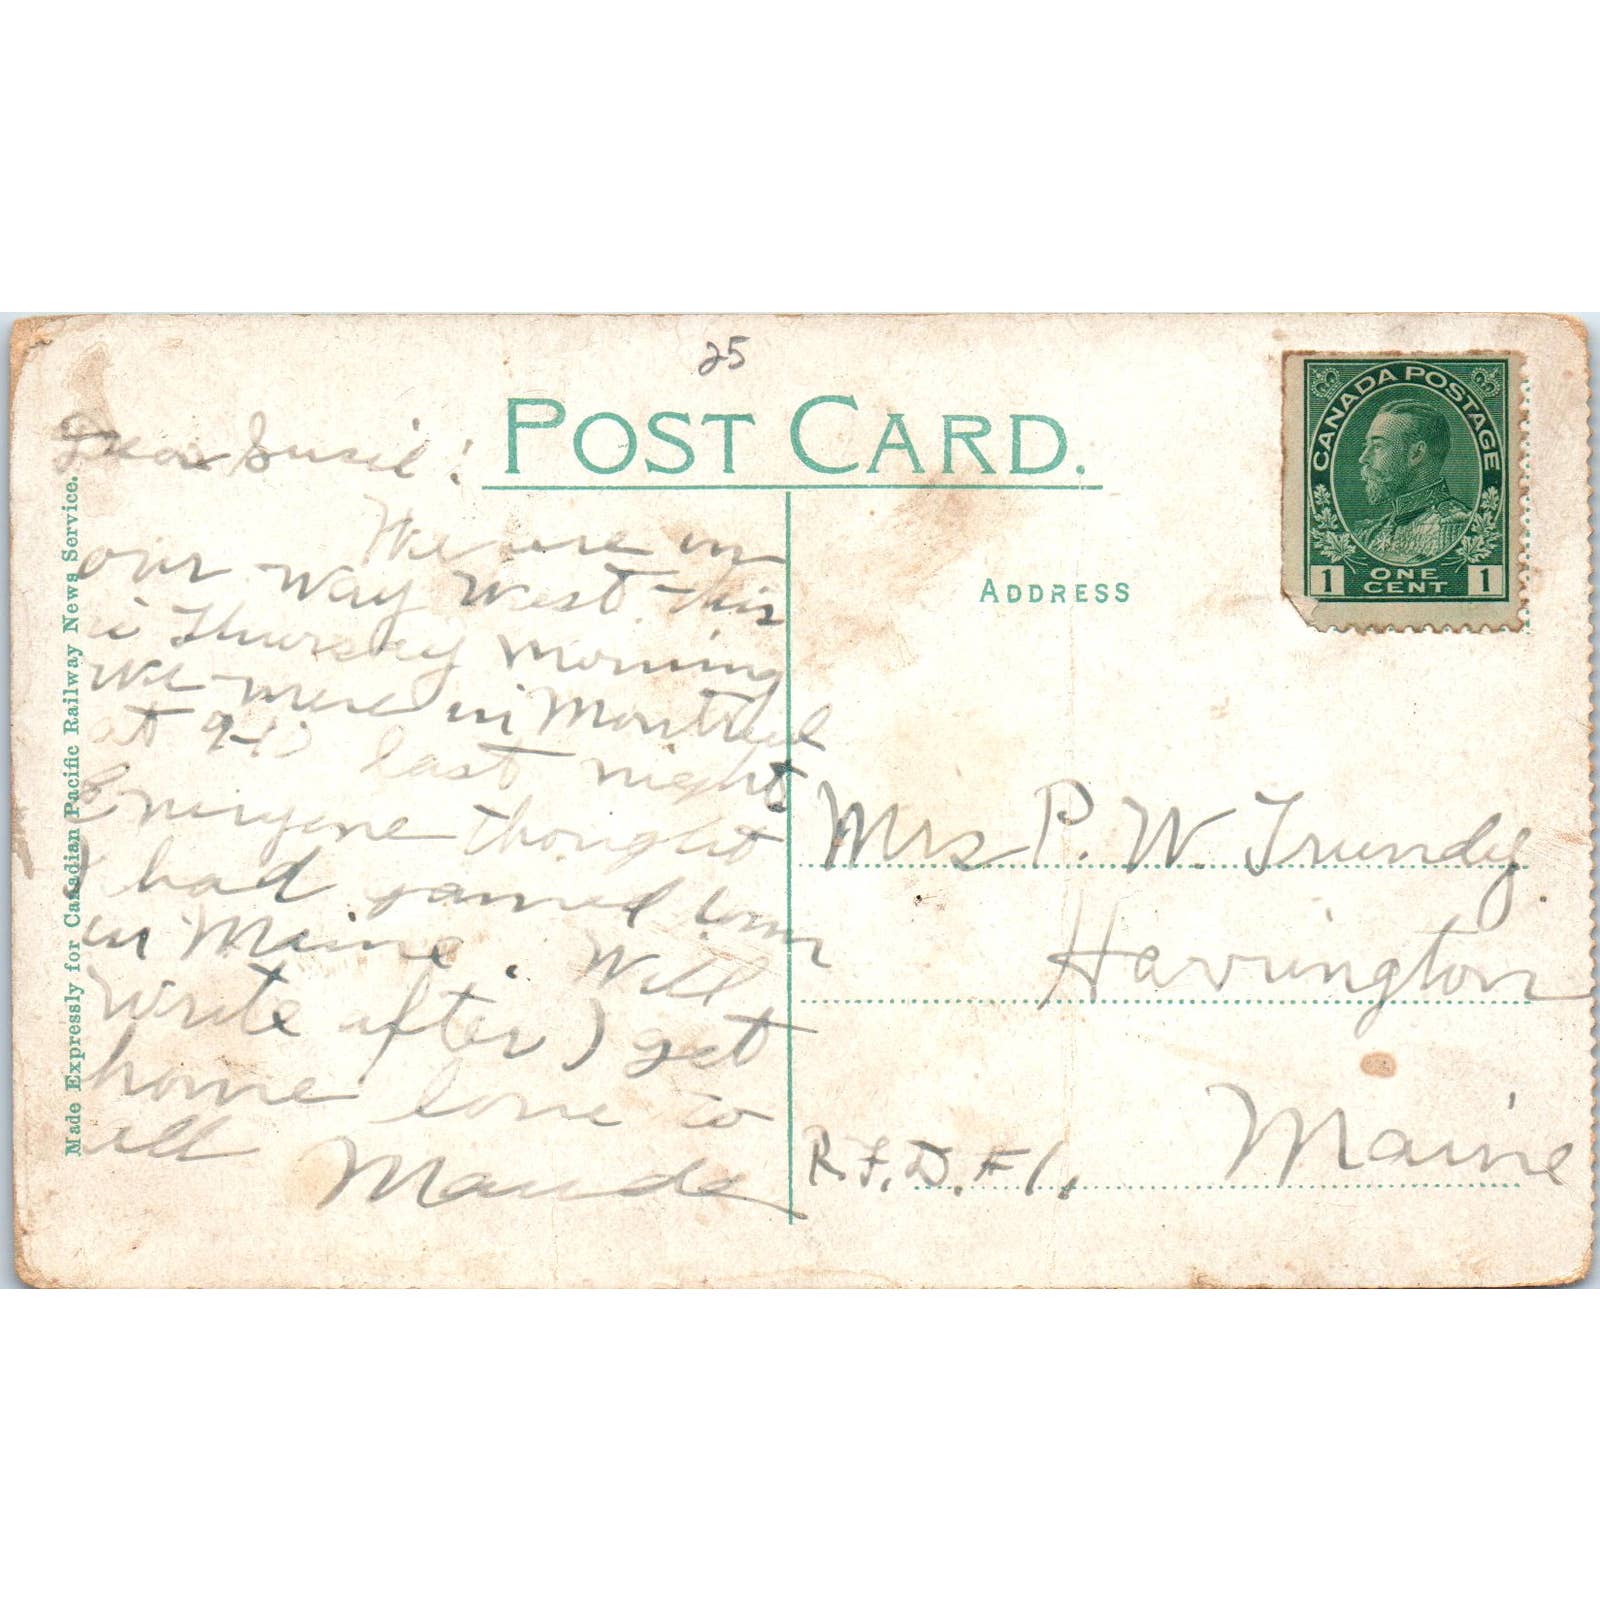 25
POST CARD.
CANADA POSTAGE
1 ONE CENT 1
Made Expressly for Canadian Pacific Railway News Service.
Dear Susie!
We are on
our way West this
is Thursday morning
we were in Montreal
at last night
Everyone thought
I had gained
in Maine. Will
write after I get
home love to
all Maude
ADDRESS
Mrs P. W. Trundy.
Harrington
Maine
R.F.D. #1,